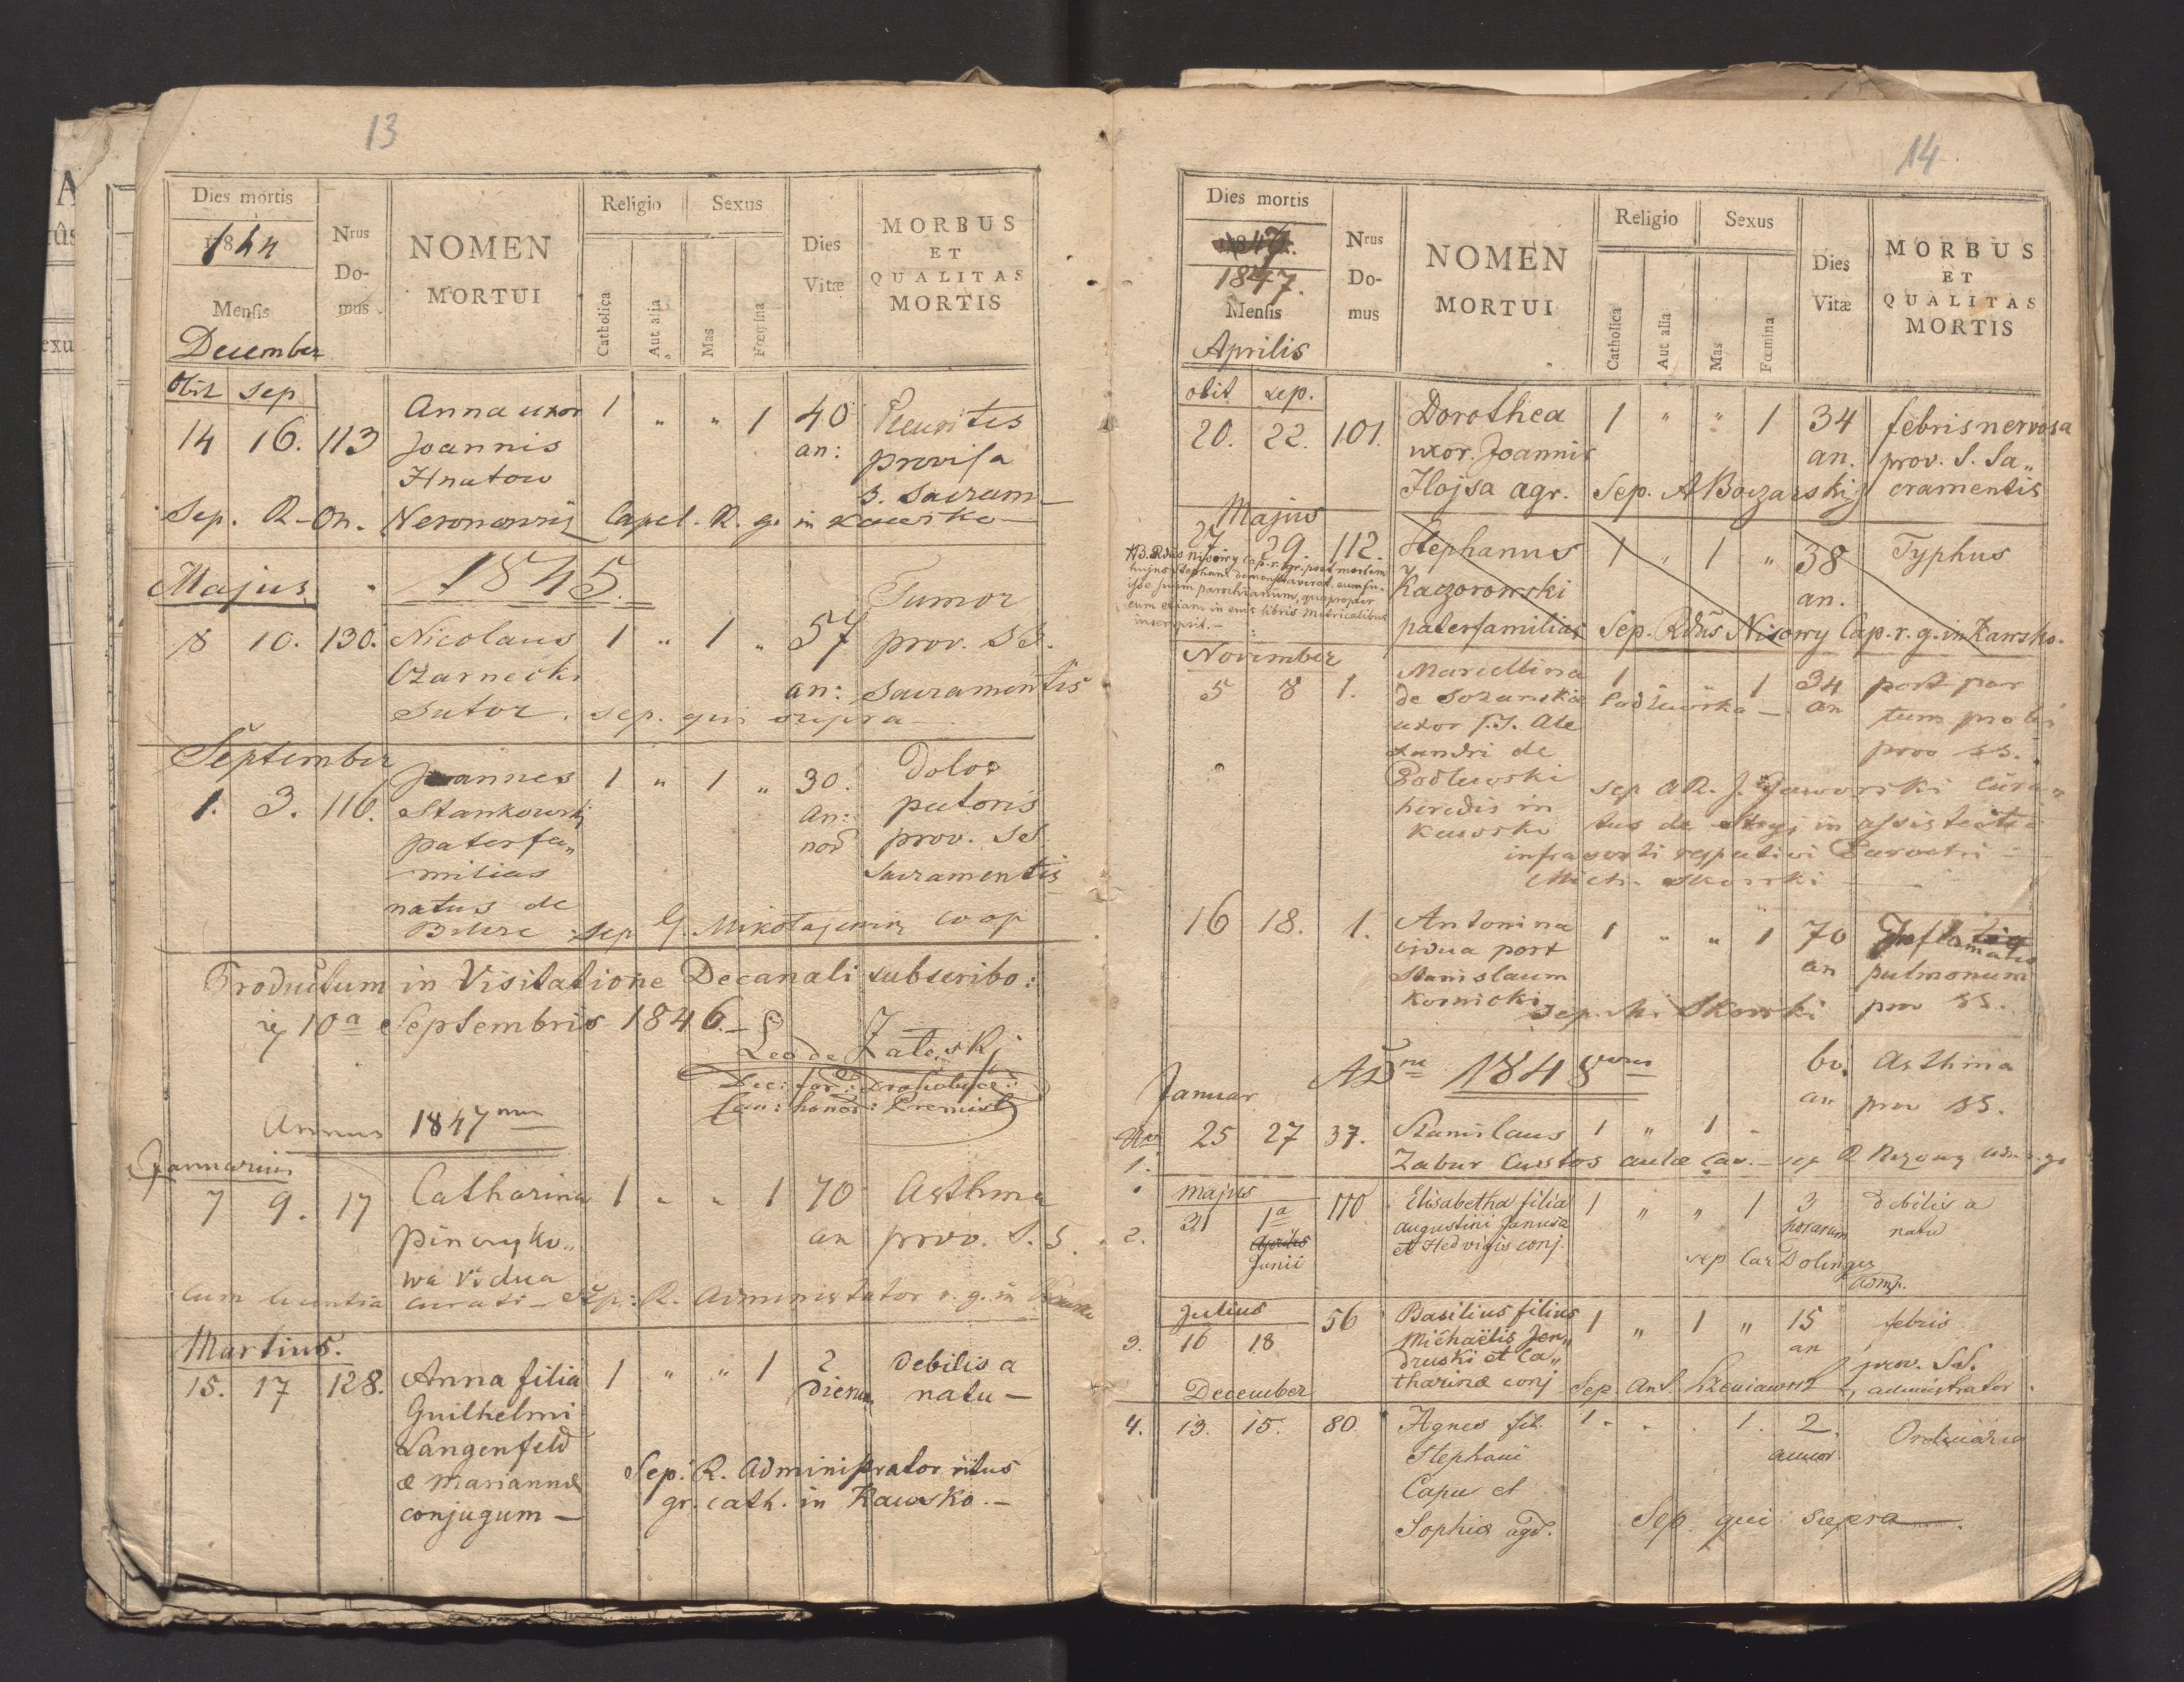 13
Dies mortis
1844
Mensis
December
Nrus Do-mus
NOMEN MORTUI
Religio
Catholica
Aut alia
Sexus
Mas
Fœmina
Dies Vitæ
MORBUS ET QUALITAS MORTIS
obit sep
14 16. 113 Anna uxor 1 " " 1 40
Joannis an: provisa
Hnatow S. Sacram
Sep. R. Capel. R. g. in Kawsko
Majus. 1845.
Tumor
8 10. 130. Nicolaus 1 " 1 " 57 prov. SS.
Czarnecki an: Sacramentis
Sutor. sep. qui supra
September
1. 3. 116. Joannes 1 " 1 " 30. Dolor
Stankowski an: pectoris
paterfa„ prov. SS
milias Sacramentis
natus de
sep G. coop
Productum in Visitatione Decanali subscribo:
10a Septembris 1846.
Leo de Zaleski
Annus 1847
Januarius
7 9. 17 Catharina 1 " " 1 70 Asthma
an prov. S. S.
wa vidua
Cum licentia curati Sep: R. Administrator r. g. in Kawsko
Martius.
15. 17 128. Anna filia 1 " " 1 2 debilis a
Guilhelmi dierum natu
Langenfeld
æ Mariannæ Sep: R. Administrator ritus
conjugum gr. cath. in Kawsko.
14
Dies mortis
1847.
Mensis
Aprilis
Nrus Do-mus
NOMEN MORTUI
Religio
Catholica
Aut alia
Sexus
Mas
Fœmina
Dies Vitæ
MORBUS ET QUALITAS MORTIS
obit sep.
20. 22. 101. Dorothea 1 " " 1 34 febris nervosa
uxor. Joannis an. prov. S. Sa„
Hojsa agr. Sep. A Boczarskij cramentis
Majus
27 29. 112. Stephanus 1 " 1 " 38 Typhus
NB. Rdus Nisowy Cap. r. gr. post mortem
hujus Stephani demonstraverat, eum fu-
isse suum parochianum, quapropter
eum etiam in suis libris Metricalibus
inscripsit.
Kaczorowski an.
paterfamilias Sep. Rdus Nisowy Cap. r. g. in Kawsko.
November
5 8 1. Marcellina 1 " " 1 34 post par
de Sozanskie Podlewska an tum
uxor prov SS.
xandri de
Podlewski sep a R. J. Jaworski Cura„
heredis in tus de Stryj in assistentia
Kawsko
infrascripti Parochi
Mich. Skorski
16 18. 1. Antonina 1 " " 1 70 Inflamatio
vidua post an pulmonum
Stanislaum prov SS.
Kornicki Sep. Mi Skorski
A Dni 1848
Januar 60. Asthma
an prov SS.
Nro 1. 25 27 37. Stanislaus 1 " 1 "
Zabur Custos aulæ Cav. sep R
Majus
2. 31 1a 170 Elisabetha filia 1 " " 1 3 debilis a
Aprilis Augustini Janusa horarum natu
Junii et Hedvigis conj.
sep Car Dolinger
Julius
3. 16 18 56 Basilius filius 1 " 1 " 15 febris
Michaëlis Jen„ an
druski et Ca„ prov. SS.
tharinæ conj Sep. Ant. administrator
December
4. 13. 15. 80. Agnes fil. 1 " . 1. 2. Ordinaria
Stephani annor.
Capu et
Sophia agr. Sep. qui supra